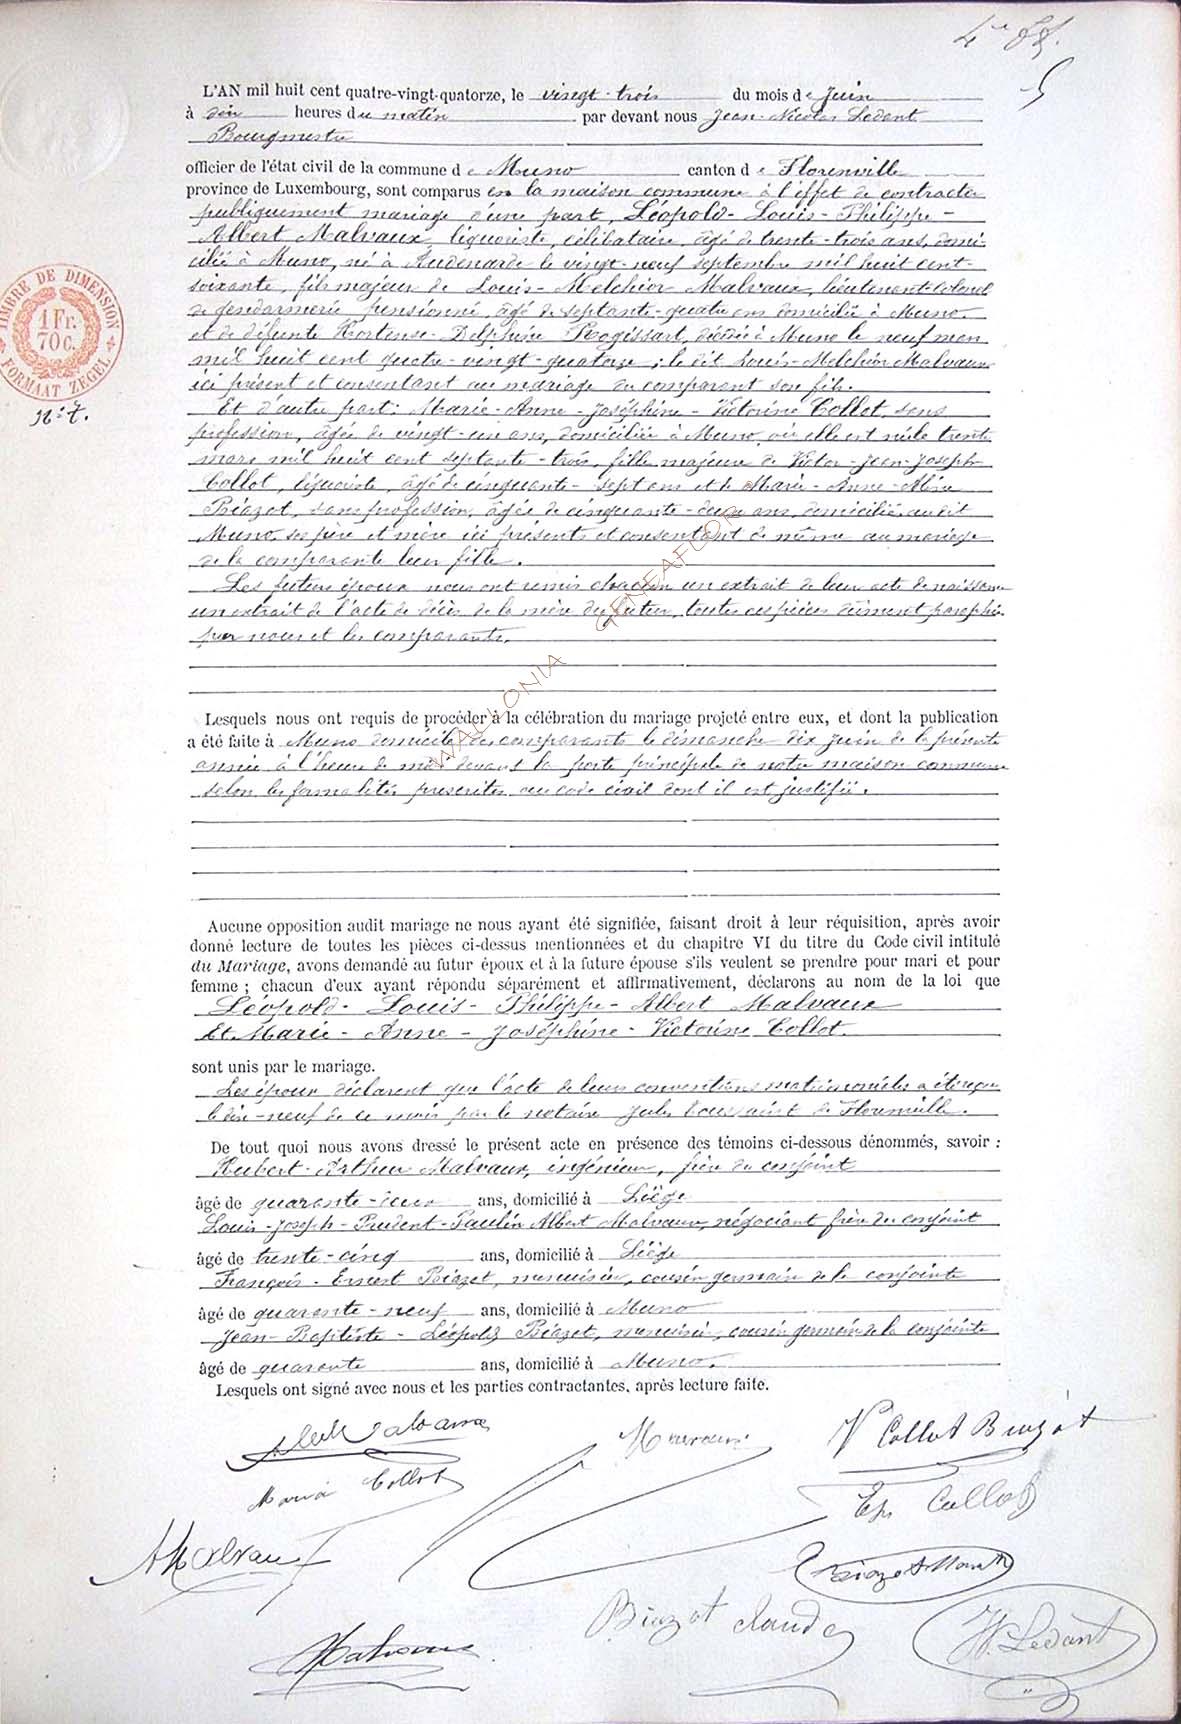 4e ff.
5
L'AN mil huit cent quatre-vingt-quatorze, le vingt-trois du mois de Juin
à dix heures du matin par devant nous Jean-Nicolas Ledant
Bourgmestre
officier de l'état civil de la commune de Muno canton de Florenville
province de Luxembourg, sont comparus en la maison commune à l'effet de contracter
publiquement mariage d'une part, Léopold-Louis-Philippe-
Albert Malvaux, liquoriste, célibataire, âgé de trente-trois ans, domi-
cilié à Muno, né à Audenarde le vingt-neuf septembre mil huit cent-
soixante, fils majeur de Louis-Melchior Malvaux, lieutenant-colonel
de gendarmerie pensionné, âgé de septante-quatre ans domicilié à Muno
et de défunte Hortense-Delphine Rogissart, décédée à Muno le neuf mars
mil huit cent quatre-vingt-quatorze; le dit Louis-Melchior Malvaux
ici présent et consentant au mariage du comparant son fils.
Et d'autre part: Marie-Anne-Joséphine-Victorine Collot, sans
profession, âgée de vingt-un ans, domiciliée à Muno, où elle est née le trente
mars mil huit cent septante-trois, fille majeure de Victor-Jean-Joseph
Collot, liquoriste, âgé de cinquante-sept ans et de Marie-Anne-Aline
Biazot, sans profession, âgée de cinquante-deux ans, domiciliés audit
Muno, ses père et mère ici présents et consentant de même au mariage
de la comparante leur fille.
Les futurs époux nous ont remis chacun un extrait de leur acte de naissance
un extrait de l'acte de décès de la mère du futur, toutes ces pièces dûment paraphées
par nous et les comparants.
TIMBRE DE DIMENSION
1 Fr. 70 c.
FORMAAT ZEGEL
No 7.
WALLONIA GENEAFLOOR
Lesquels nous ont requis de procéder à la célébration du mariage projeté entre eux, et dont la publication
a été faite à Muno domicile des comparants le dimanche dix juin de la présente
année à l'heure de midi devant la porte principale de notre maison commune
selon les formalités prescrites au code civil dont il est justifié.
Aucune opposition audit mariage ne nous ayant été signifiée, faisant droit à leur réquisition, après avoir
donné lecture de toutes les pièces ci-dessus mentionnées et du chapitre VI du titre du Code civil intitulé
du Mariage, avons demandé au futur époux et à la future épouse s'ils veulent se prendre pour mari et pour
femme ; chacun d'eux ayant répondu séparément et affirmativement, déclarons au nom de la loi que
Léopold-Louis-Philippe-Albert Malvaux
Et Marie-Anne-Joséphine-Victorine Collot.
sont unis par le mariage.
Les époux déclarent que l'acte de leurs conventions matrimoniales a été reçu
le dix-neuf de ce mois par le notaire Jules Toussaint de Florenville.
De tout quoi nous avons dressé le présent acte en présence des témoins ci-dessous dénommés, savoir :
Hubert-Arthur Malvaux, ingénieur, frère du conjoint
âgé de quarante-deux ans, domicilié à Liège
Louis-Joseph-Prudent-Paulin Albert Malvaux, négociant frère du conjoint
âgé de trente-cinq ans, domicilié à Liège
François-Ernest Biazot, menuisier, cousin germain de la conjointe
âgé de quarante-neuf ans, domicilié à Muno
Jean-Baptiste-Léopold Biazot, menuisier, cousin germain de la conjointe
âgé de quarante ans, domicilié à Muno.
Lesquels ont signé avec nous et les parties contractantes, après lecture faite.
Malvaux V Collot Biazot
Maria Collot
Collot
A Malvaux
Biazot claude
Malvaux
N. Ledant